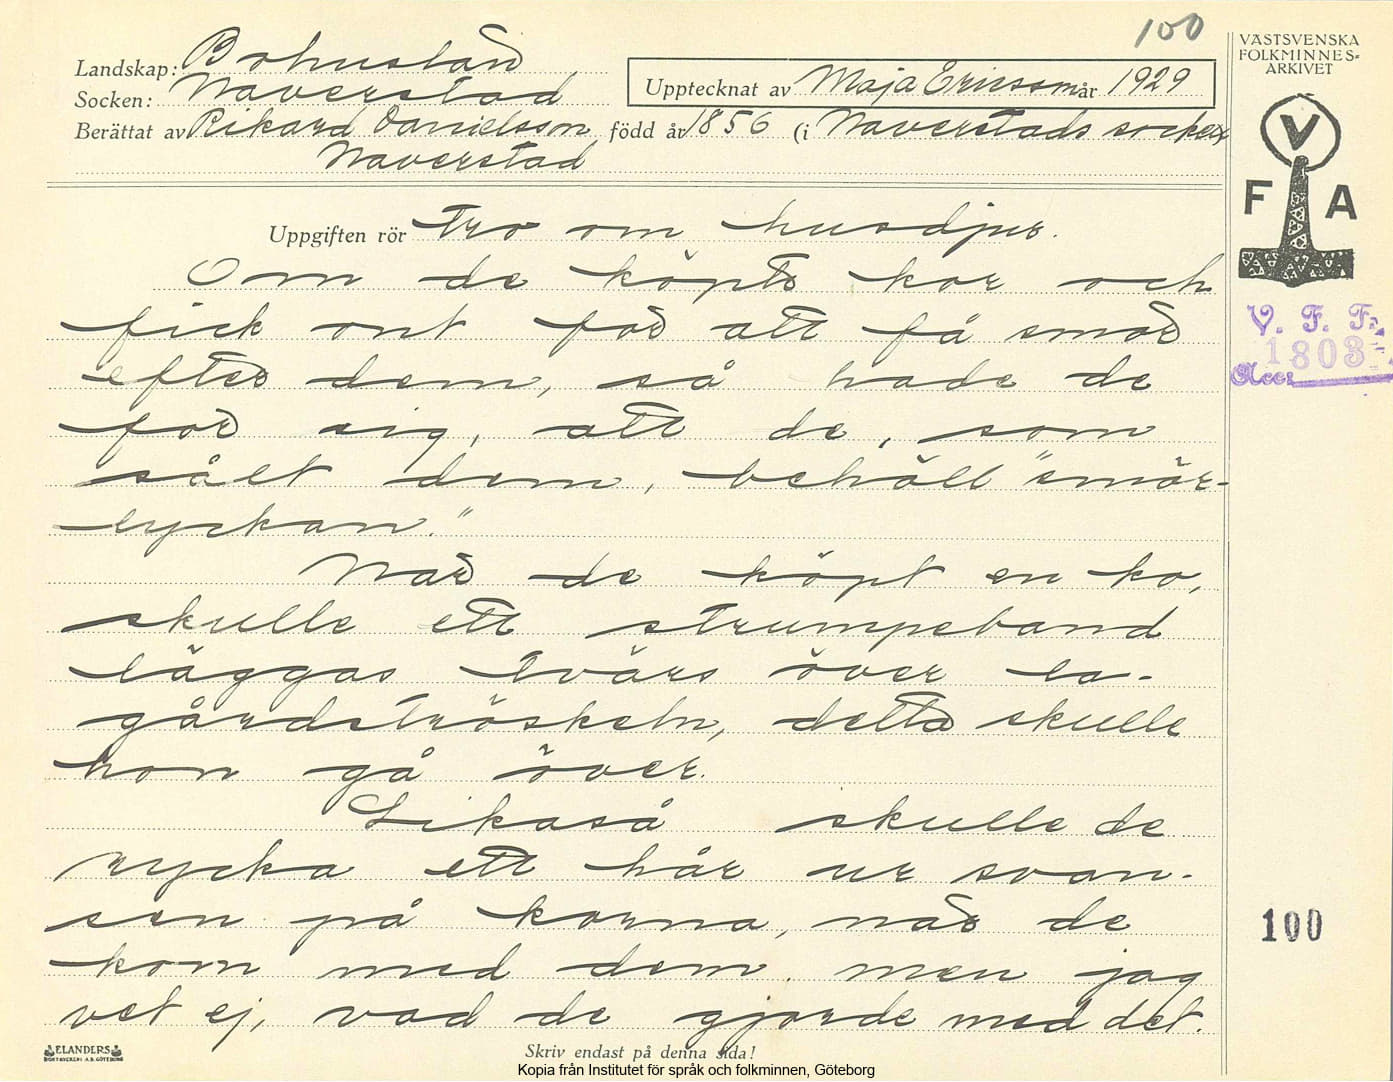 100
Landskap: Bohuslän
Socken: Naverstad
Upptecknat av Maja Ericsson år 1929
Berättat av Rikard Danielsson född år 1856 (i Naverstads socken
Naverstad
VÄSTSVENSKA
FOLKMINNES-
ARKIVET
V
F A
V. F. F.
1803
Acc.
Uppgiften rör Tro om husdjur.
Om de köpte kor och
fick ont för att få smör
efter dem, så hade de
för sig, att de, som
sålt dem, behöll "smör-
lyckan."
När de köpt en ko,
skulle ett strumpeband
läggas tvärs över la-
gårdströskeln, detta skulle
hon gå över.
Likaså skulle de
rycka ett hår ur svan-
sen på korna, när de
kom med dem, men jag
vet ej, vad de gjorde med det.
100
ELANDERS
BOKTRYCKERI A.B. GÖTEBORG
Skriv endast på denna sida!
Kopia från Institutet för språk och folkminnen, Göteborg